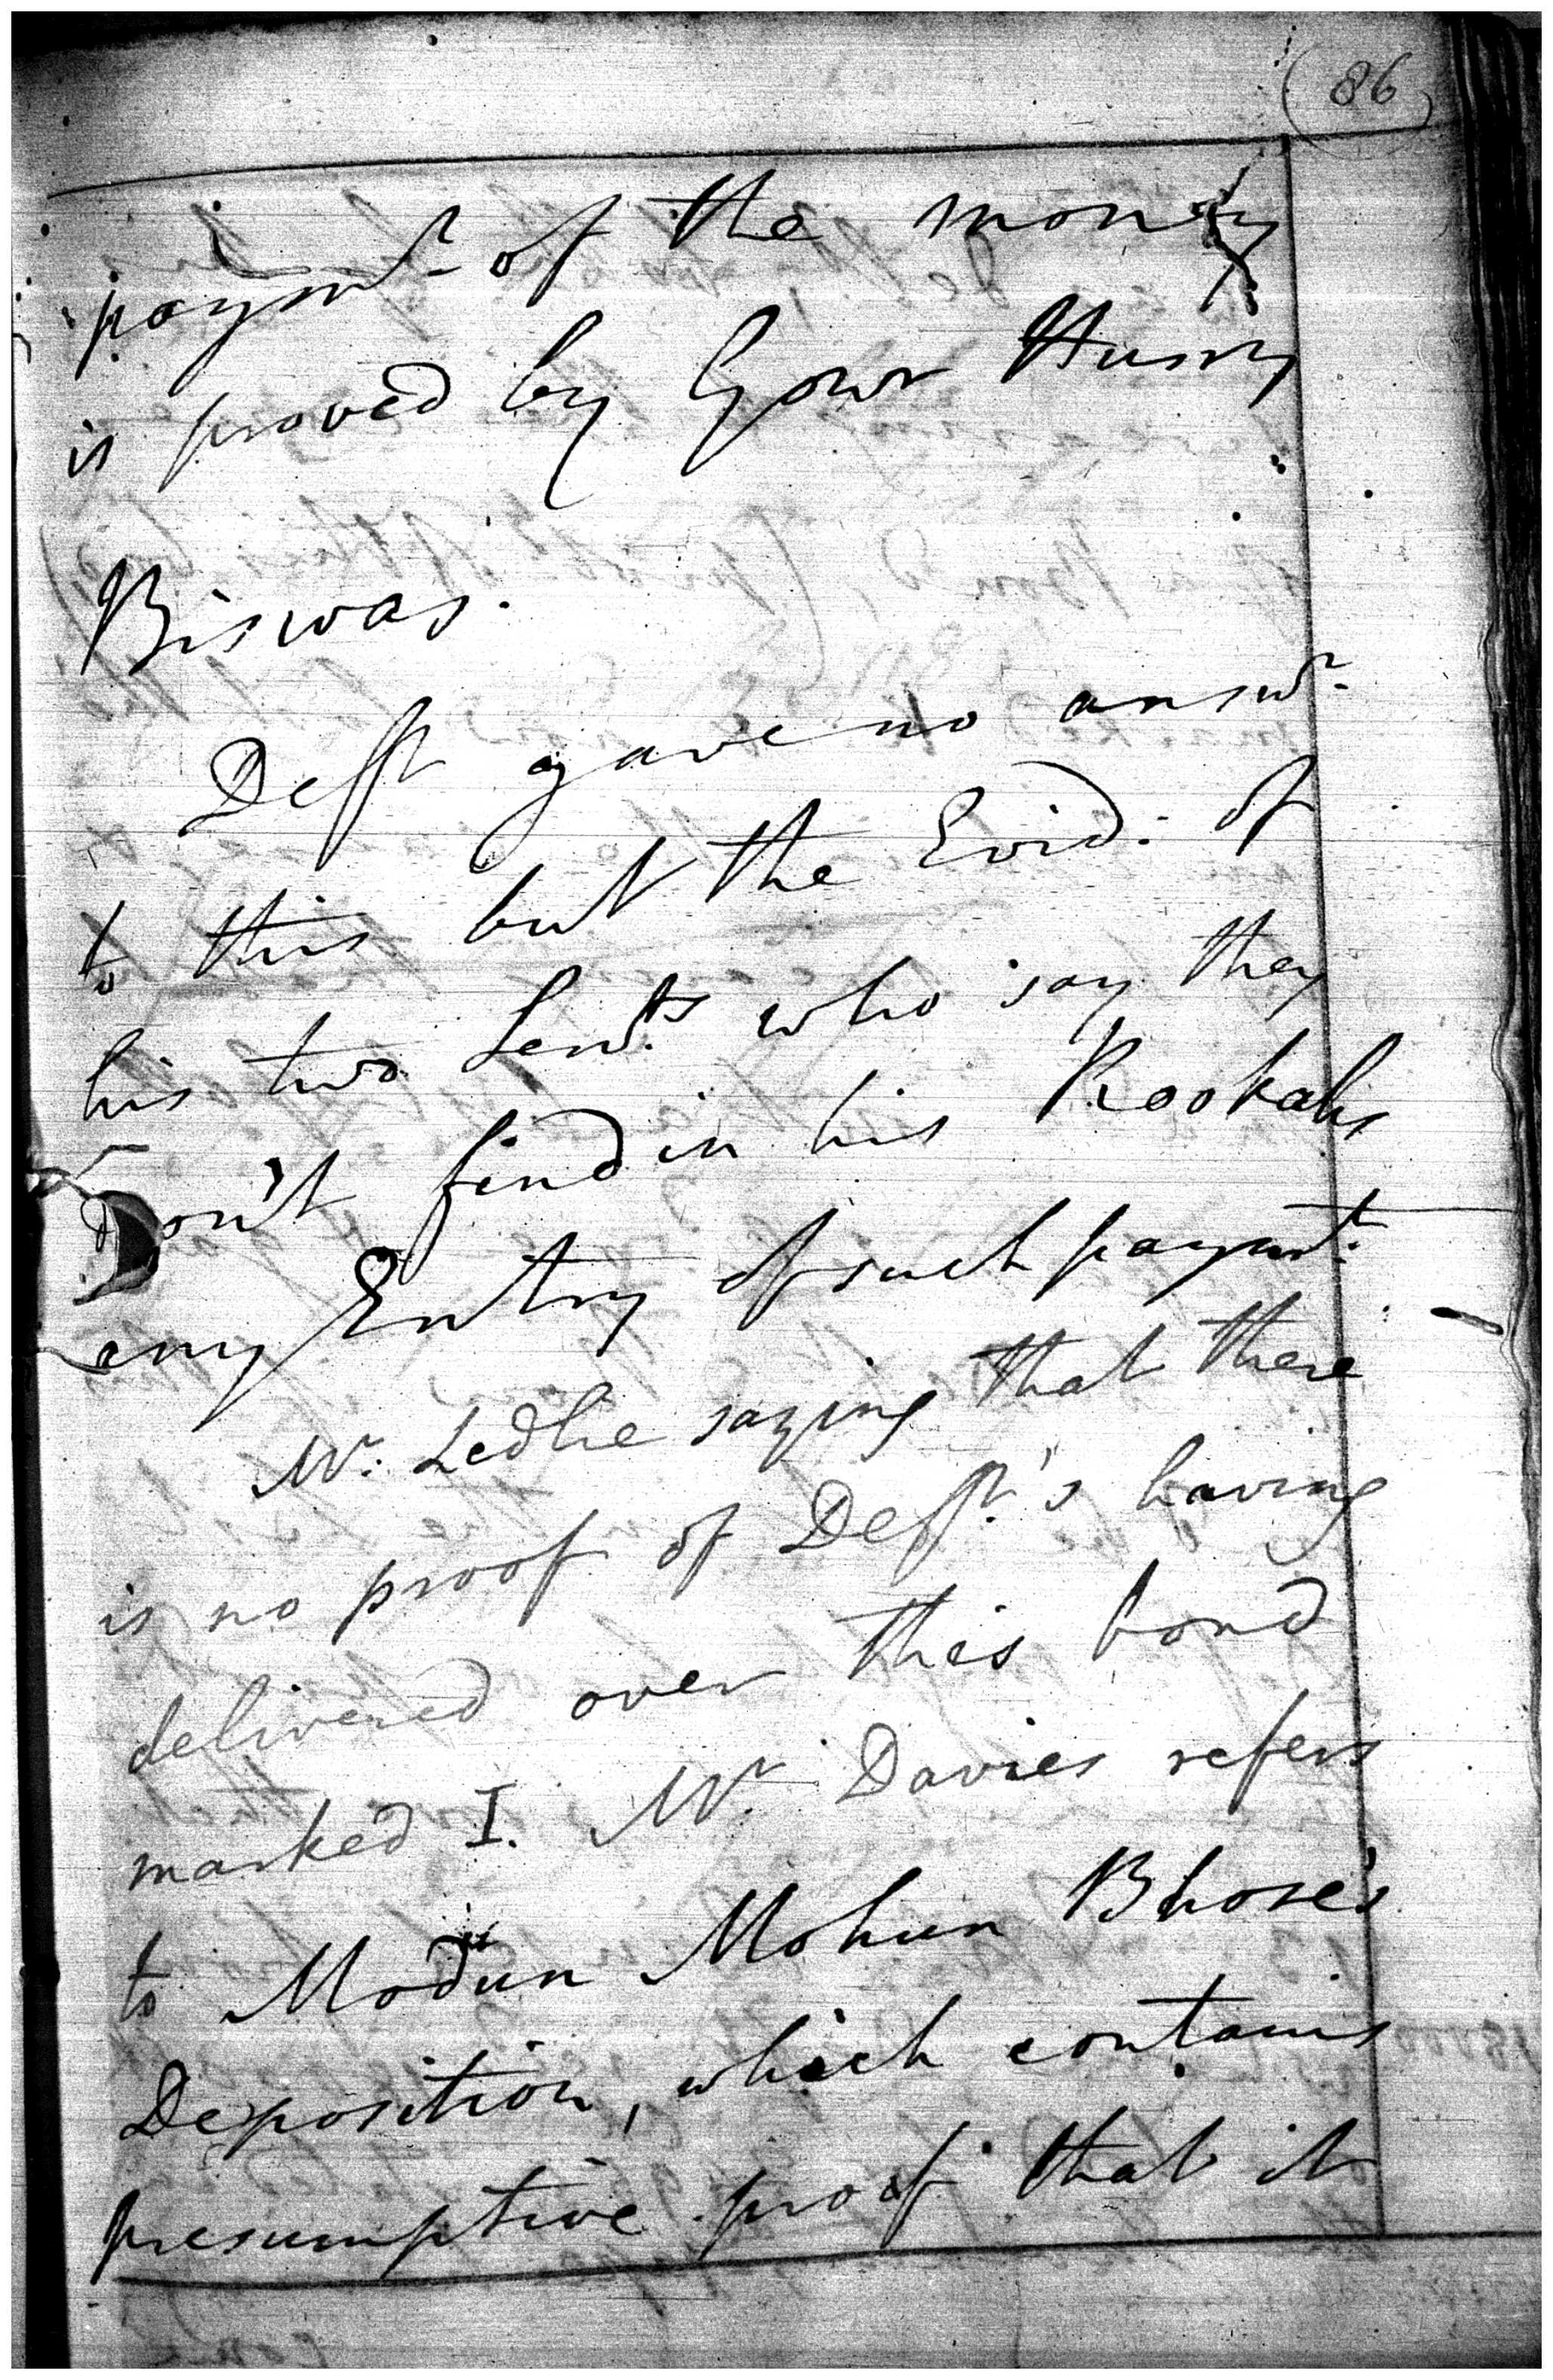 86
paymt. of the money
is proved by Gowr Hurry
Biswas.
Deft gave no answr.
to this but the Evid: of
his two Servts. who say they
Don't find in his Rookahs
any Entry of such paymt.
Mr. Ledlie saying that there
is no proof of Deft.'s having
delivered over this bond
marked I. Mr. Davies refers
to Modun Mohun Bhose's
Deposition, which contains
presumptive proof that it